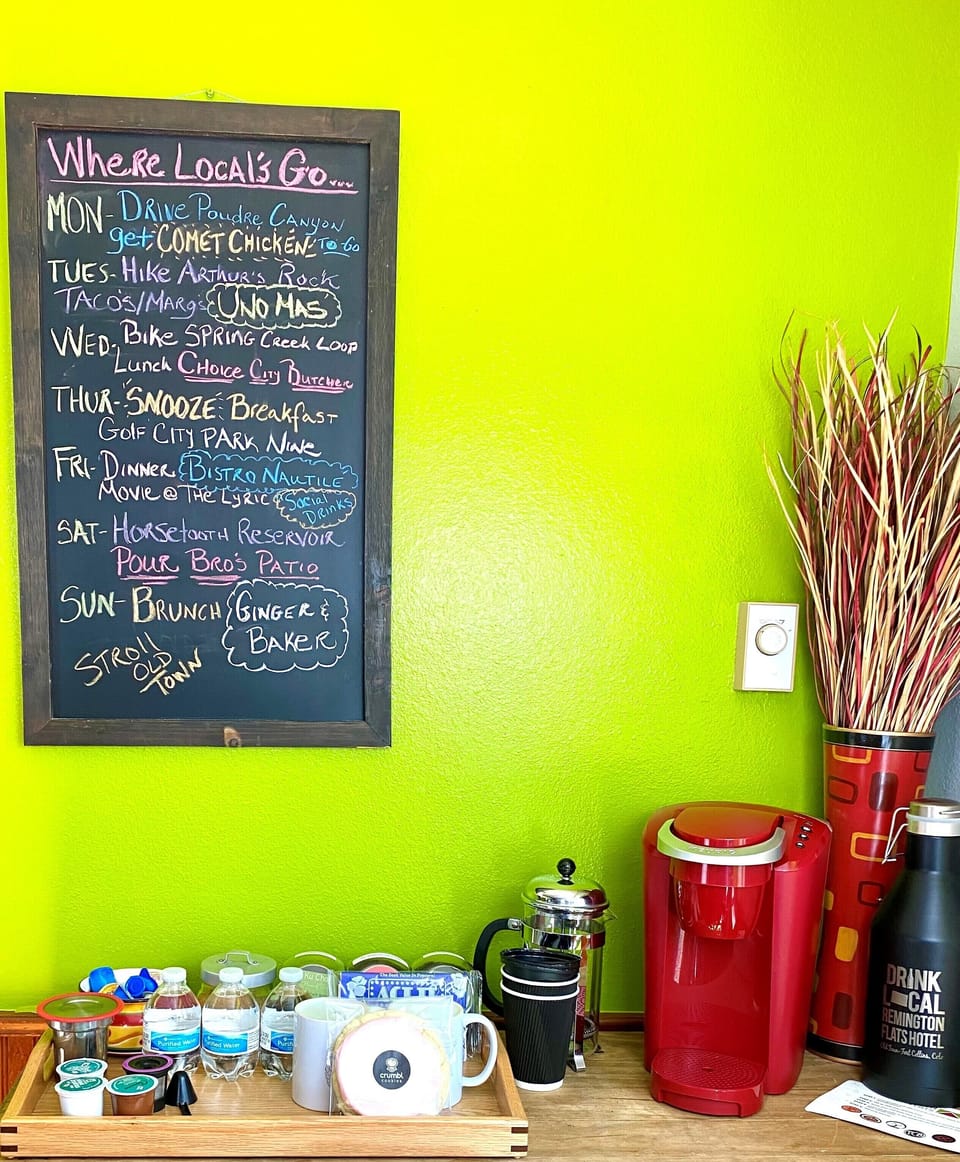 Where Local's Go...
MON- Drive Poudre Canyon
get COMET CHICKEN To-Go
TUES- Hike Arthur's Rock
TACO'S/Marg's UNO MAS
WED- Bike SPRING Creek Loop
Lunch Choice City Butcher
THUR- "SNOOZE" Breakfast
Golf CITY PARK Nine
FRI- Dinner BISTRO NAUTILE
Movie @ The Lyric & Social
Drinks
SAT- Horsetooth Reservoir
Pour Bro's Patio
SUN- BRUNCH GINGER &
BAKER
STROLL
OLD
TOWN
The Best Value In Popcorn
Purified Water
Purified Water
crumbl
cookies
DRINK
LOCAL
REMINGTON
FLATS HOTEL
Old Town - Fort Collins, Colo